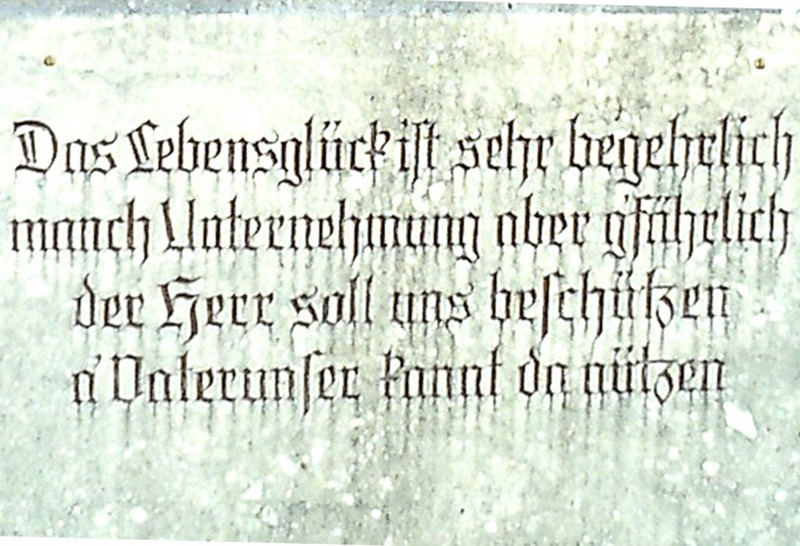 Das Lebensglück ist sehr begehrlich
manch Unternehmung aber g'fährlich
der Herr soll uns beschützen
a' Vaterunser kannt da nützen